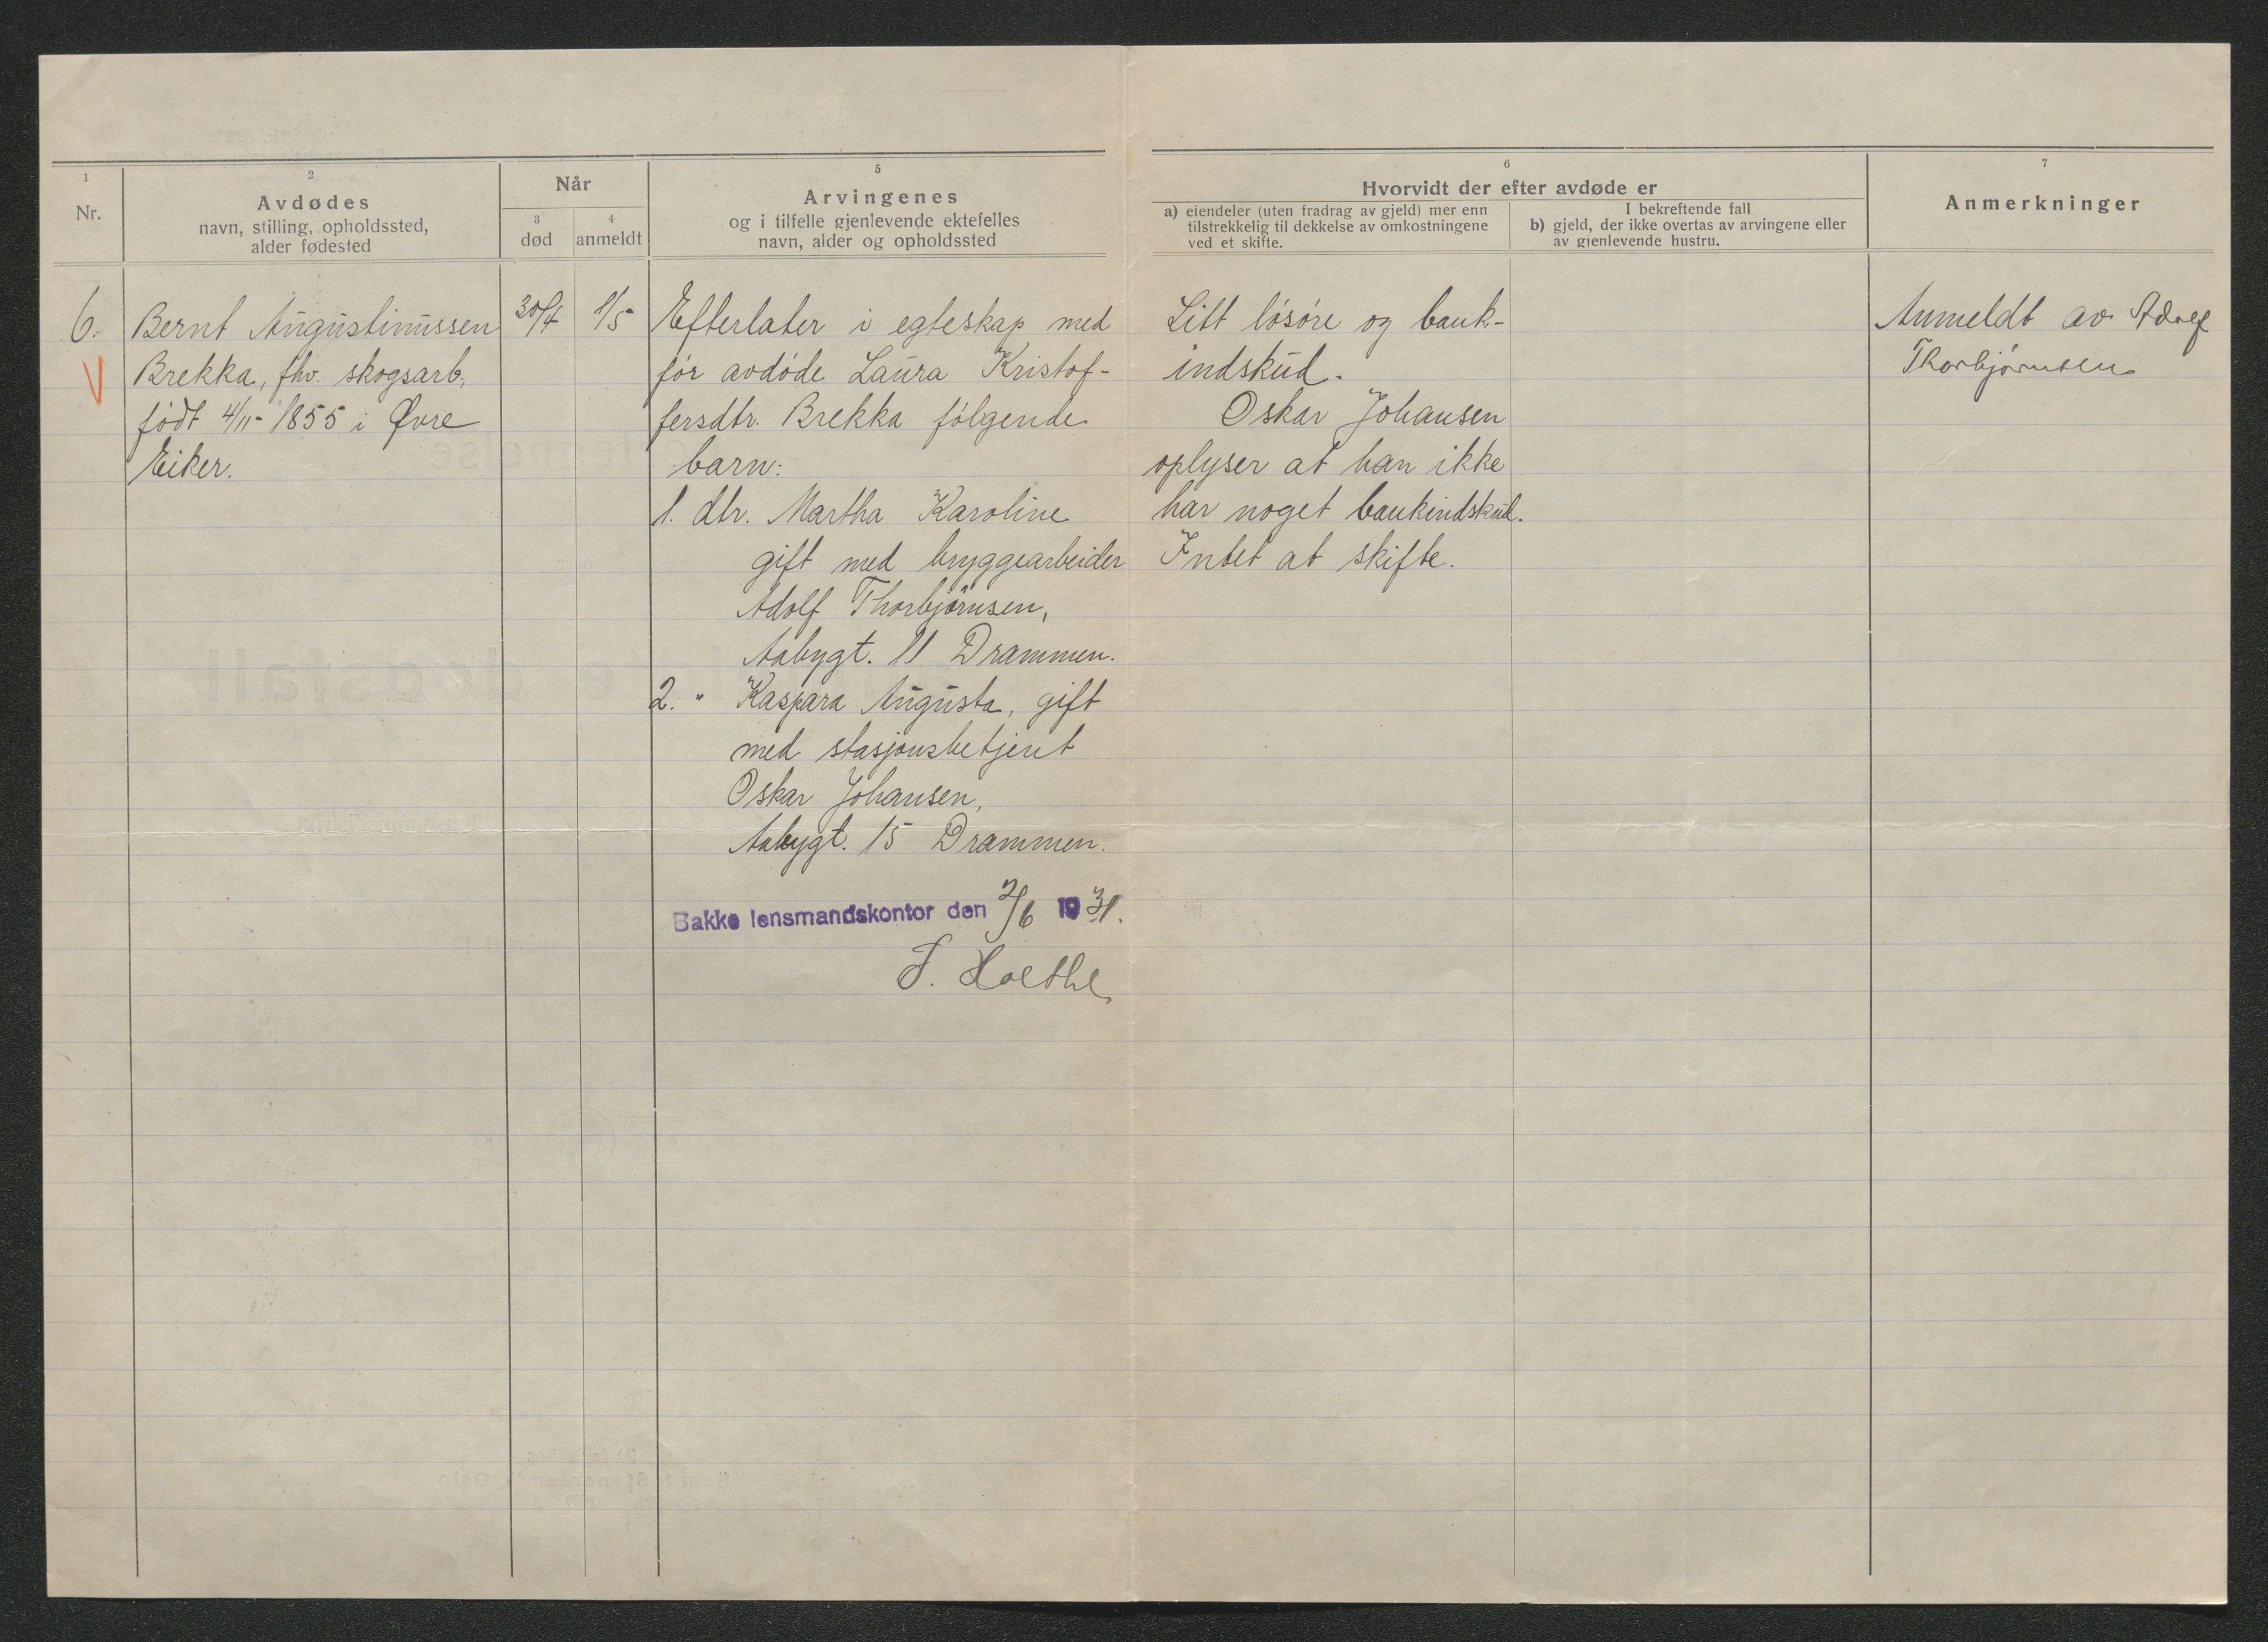 1
Nr.
2
Avdødes
navn, stilling, opholdssted,
alder fødested
Når
3
død
4
anmeldt
5
Arvingenes
og i tilfelle gjenlevende ektefelles
navn, alder og opholdssted
6
Hvorvidt der efter avdøde er
a) eiendeler (uten fradrag av gjeld) mer enn
tilstrekkelig til dekkelse av omkostningene
ved et skifte.
I bekreftende fall
b) gjeld, der ikke overtas av arvingene eller
av gjenlevende hustru.
7
Anmerkninger
6.
V
Bernt Augustinussen
Brekka, fhv. skogsarb,
født 4/11- 1855 i Øvre
Eiker.
30/4
1/5
Efterlater i egteskap med
før avdøde Laura Kristof-
fersdtr. Brekka følgende
barn:
1. dtr. Martha Karoline
gift med bryggearbeider
Adolf Thorbjørnsen,
Aabygt. 11 Drammen.
2. " Kaspara Augusta, gift
med stasjonsbetjent
Oskar Johansen,
Aabygt. 15 Drammen.
Bakke lensmandskontor den 2/6 1931.
Litt løsøre og bank-
indskud.
Oskar Johansen
oplyser at han ikke
har noget bankindskud.
Intet at skifte.
Anmeldt av Adolf
Thorbjørnsen